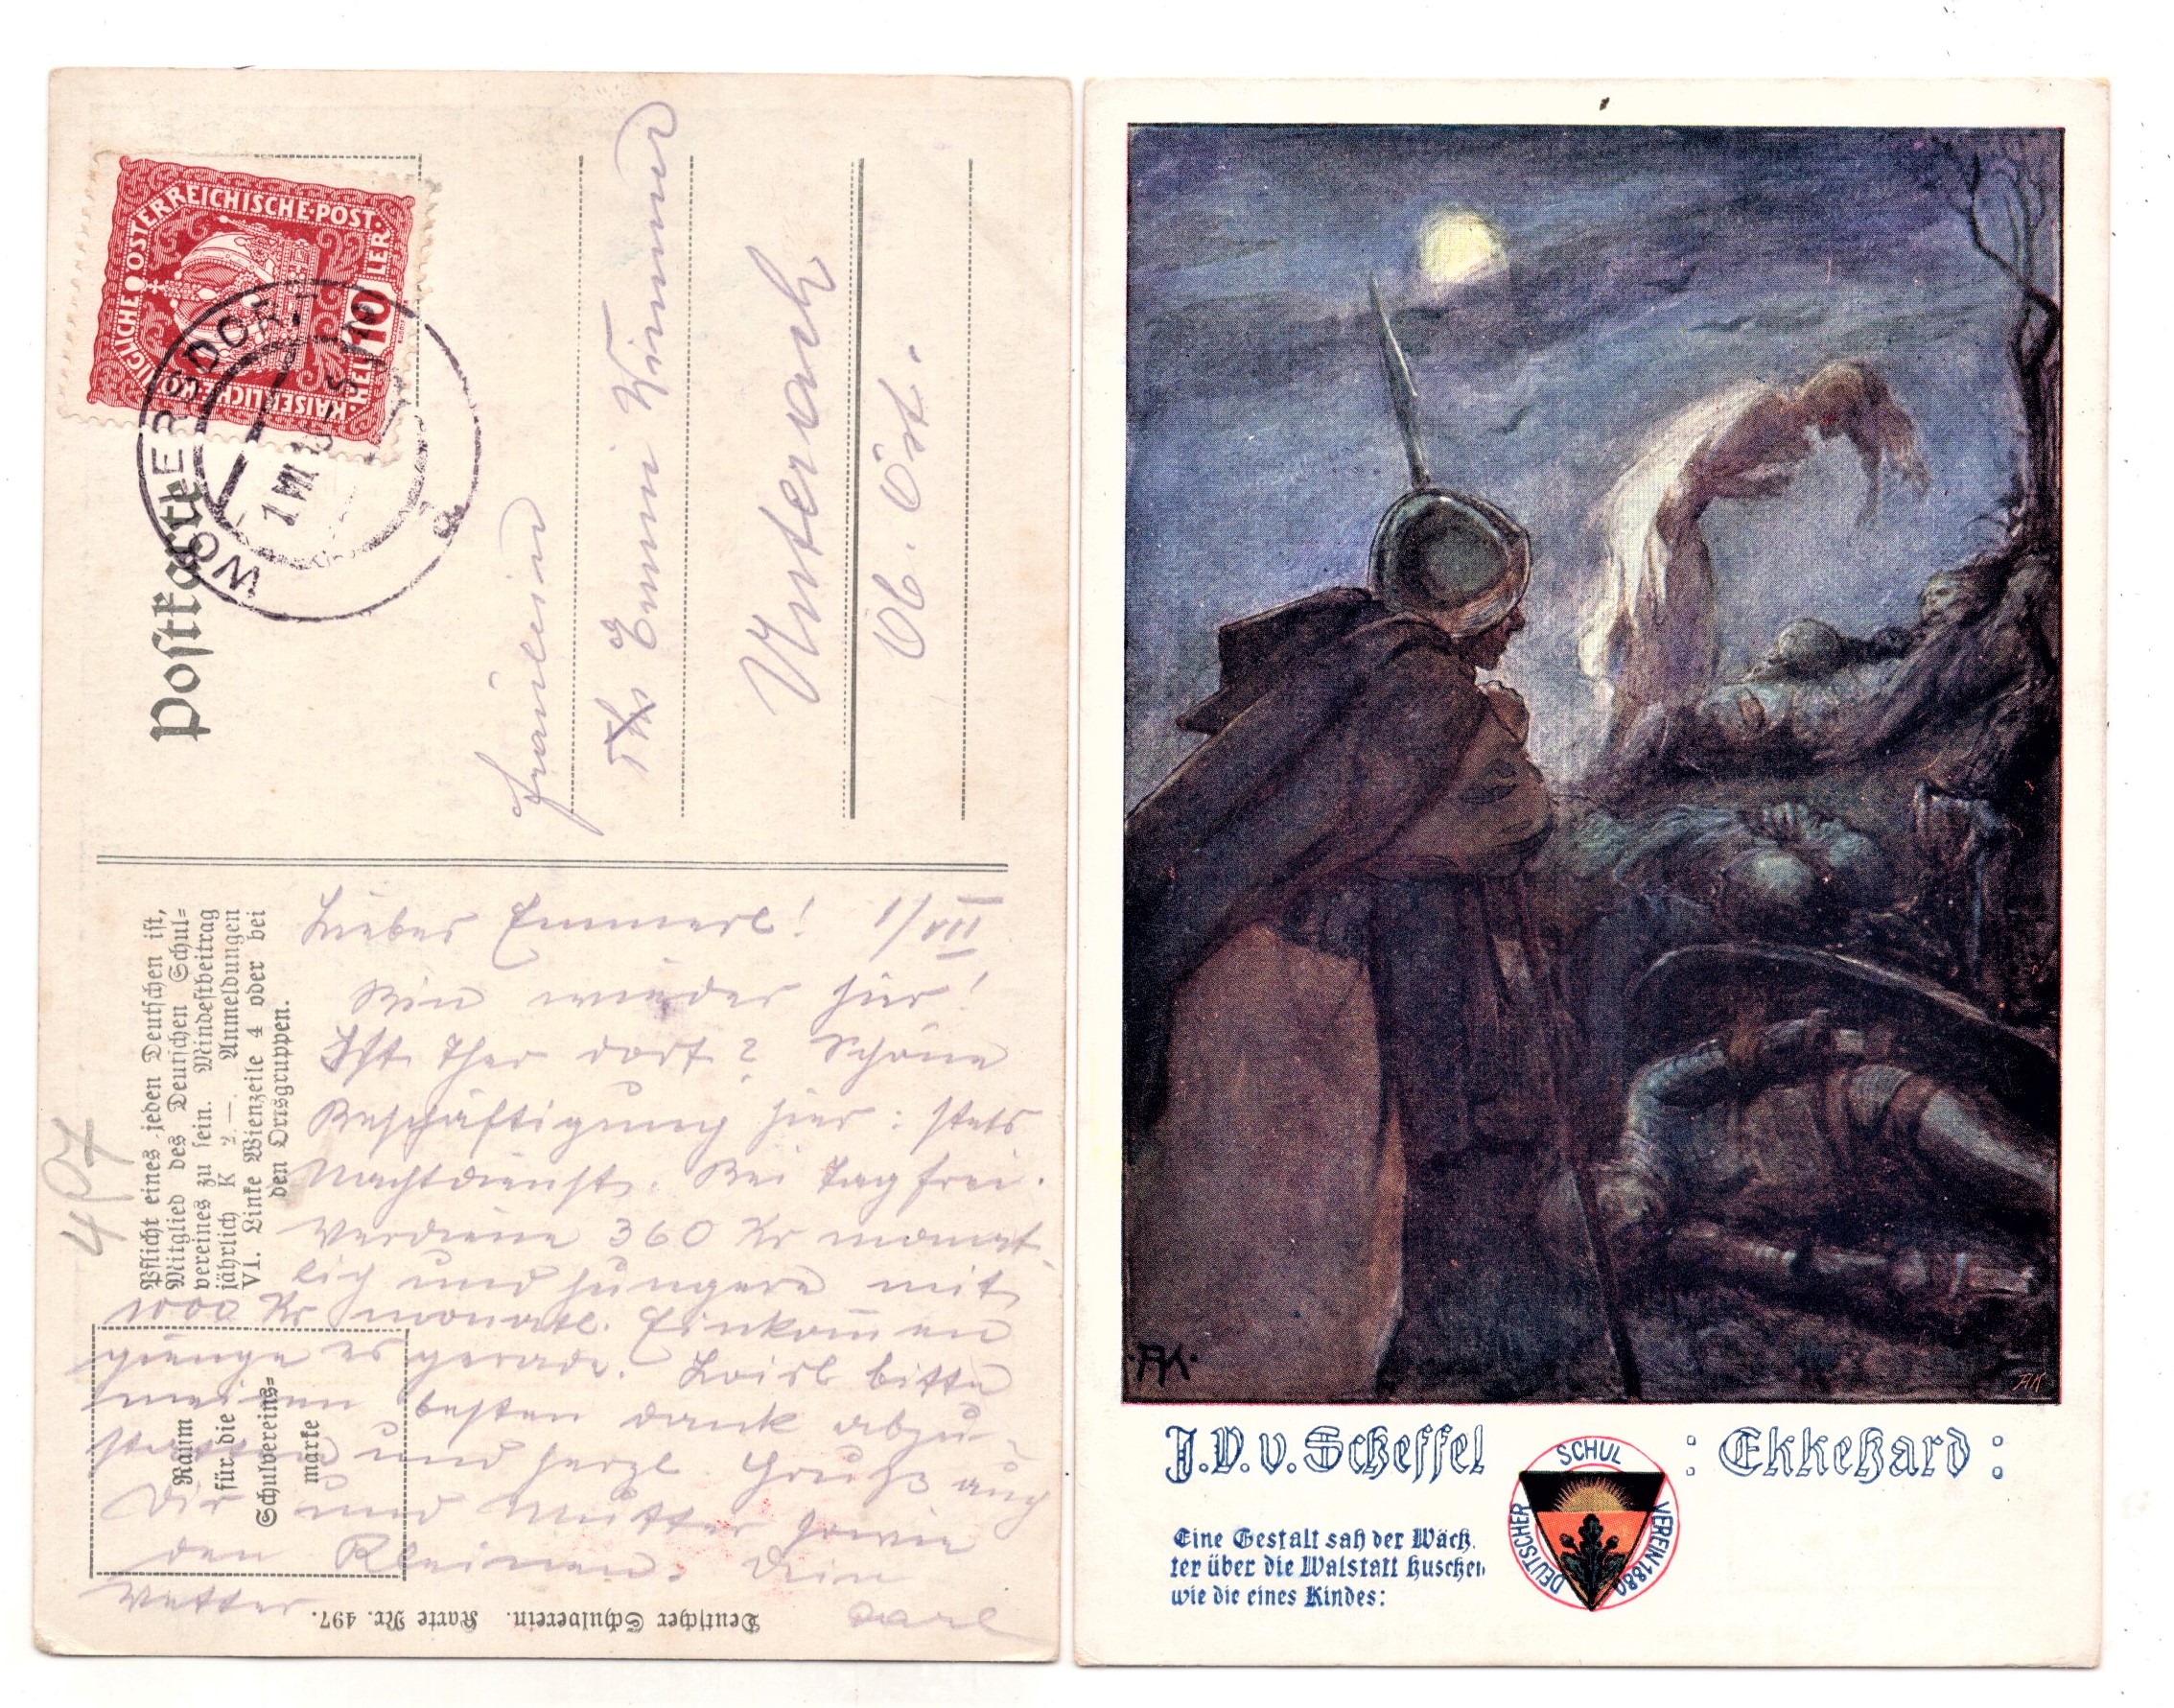 Postkarte
KAISERLICHE KÖNIGLICHE ÖSTERREICHISCHE POST
10 HELLER
WÖLLERSDORF
1 VII
a
Fräulein
Emmi
Unterach
Ob. Öst.
Pflicht eines jeden Deutschen ist,
Mitglied des Deutschen Schul=
vereines zu sein. Mindestbeitrag
jährlich K 2.—. Anmeldungen
VI. Linke Wienzeile 4 oder bei
den Ortsgruppen.
407
Raum
für die
Schulvereins=
marke
Liebes Emmerl! 1/VII
Bin wieder hier!
Ist Ther dort? Schöne
Beschäftigung hier: stets
Nachtdienst. Bei Tag frei.
Verdiene 360 Kr monat
lich und hungere mit
1000 Kr monatl. Einkommen
gienge es gerade. Loisl bitte
meinen besten Dank abzu=
statten und herzl. Gruß auch
Dir und Mutter sowie
den Kleinen. Dein
Vetter
Karl
Deutscher Schulverein. Karte Nr. 497.
AK
AK
J.V.v.Scheffel : Ekkehard :
DEUTSCHER SCHUL VEREIN 1880
Eine Gestalt sah der Wäch=
ter über die Walstatt huschen
wie die eines Kindes: